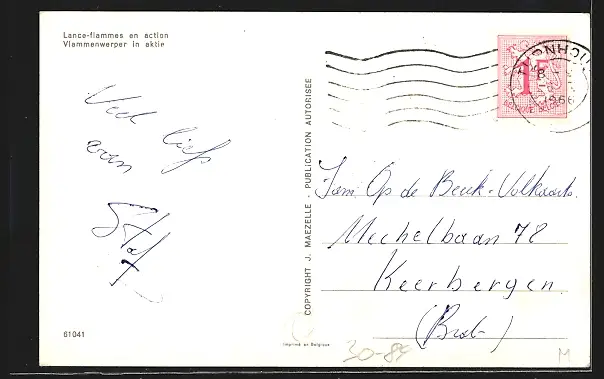 Lance-flammes en action
Vlammenwerper in aktie
Veel liefs
aan
61041
COPYRIGHT J. MAEZELLE - PUBLICATION AUTORISEE
Imprimé en Belgique
1F
1966
Fam Op de Beeck-Volkaerts
Mechelbaan 78
Keerbergen
(Brab-)
30-84
M